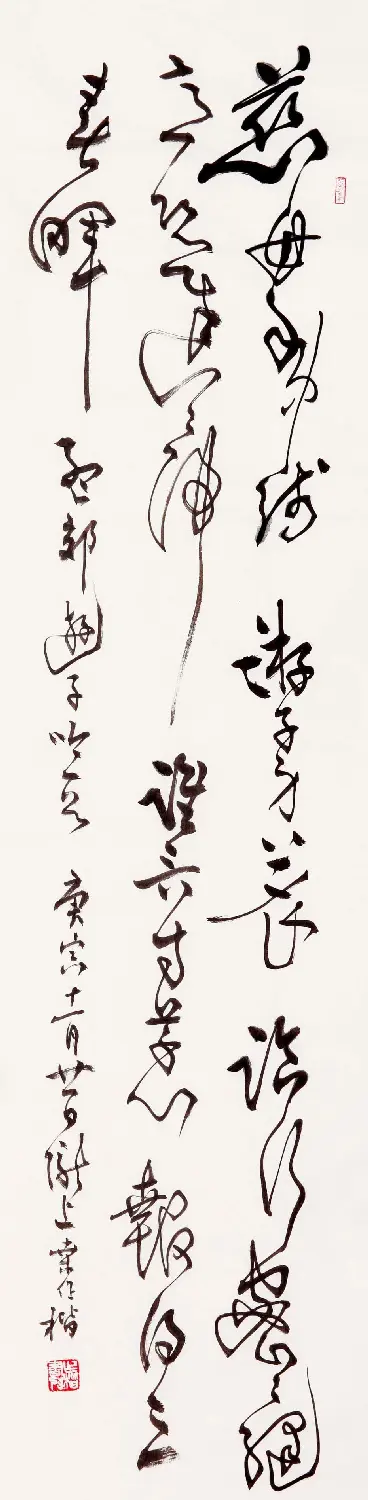 慈母手中线游子身上衣临行密密缝
意恐迟迟归谁言寸草心报得三
春晖孟郊游子吟一首庚寅十一月廿日陇上